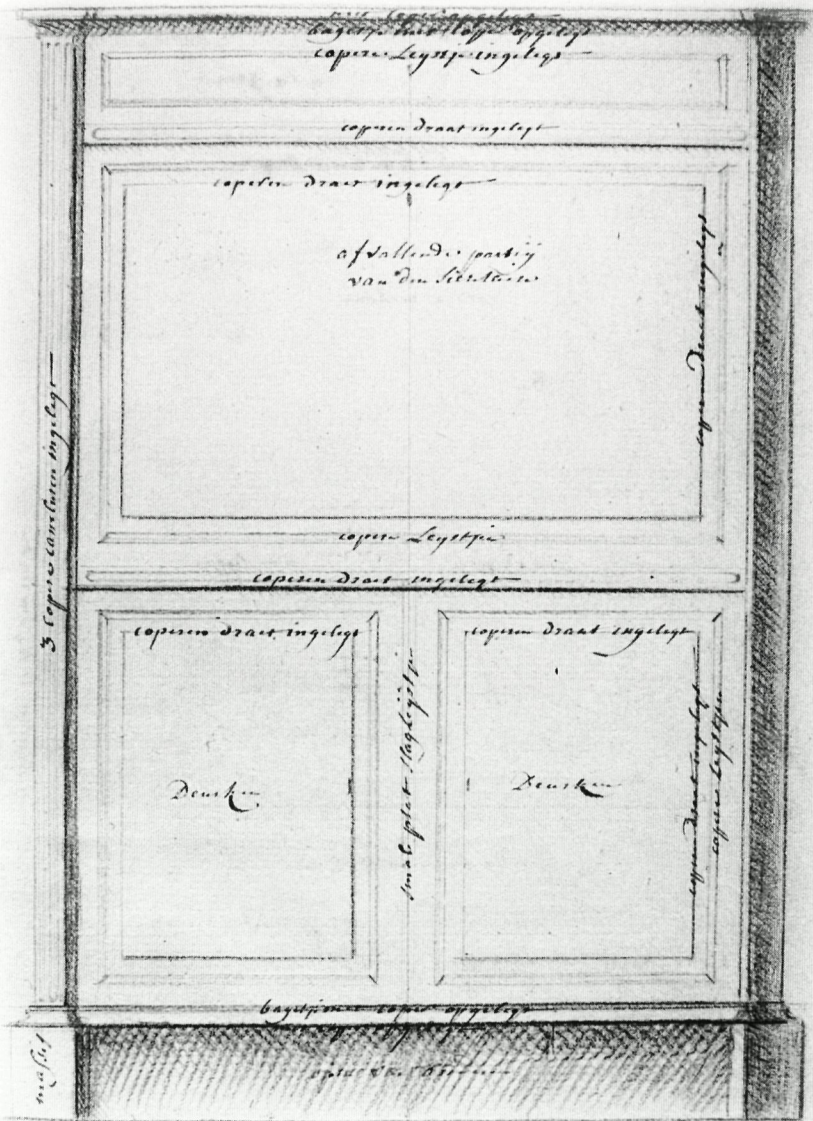 bagetje met coper opgelegt
copere Leystje ingelegt
coperen draat ingelegt
coperen draet ingelegt
afvallende partij
van den Secretaire
coperen draet ingelegt
3 copere canelures ingelegt
copere Leystje
coperen draet ingelegt
coperen draet ingelegt
coperen draat ingelegt
smal plat slagleystje
Deurken
Deurken
coperen draet ingelegt
copere Leystje
bagetje met coper opgelegt
massif